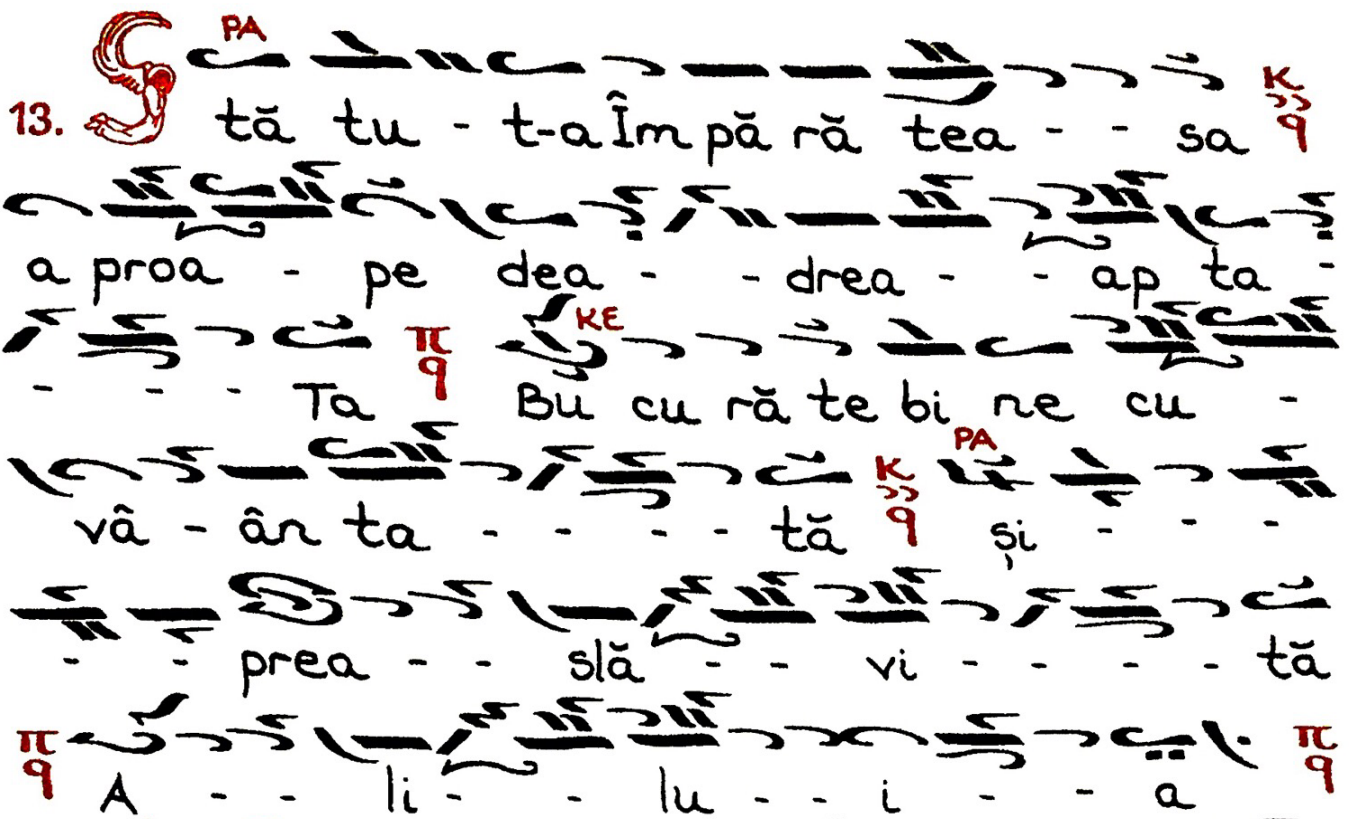 PA
13. S tă tu - t-a Îm pă ră tea - - sa K q
a proa - pe dea - - drea - - ap ta -
- - - Ta π q KE Bu cu ră te bi ne cu -
vâ - ân ta - - - - tă K q PA și - - -
- - prea - - slă - - vi - - - - tă
π q A - - li - - lu - - i - - a π q